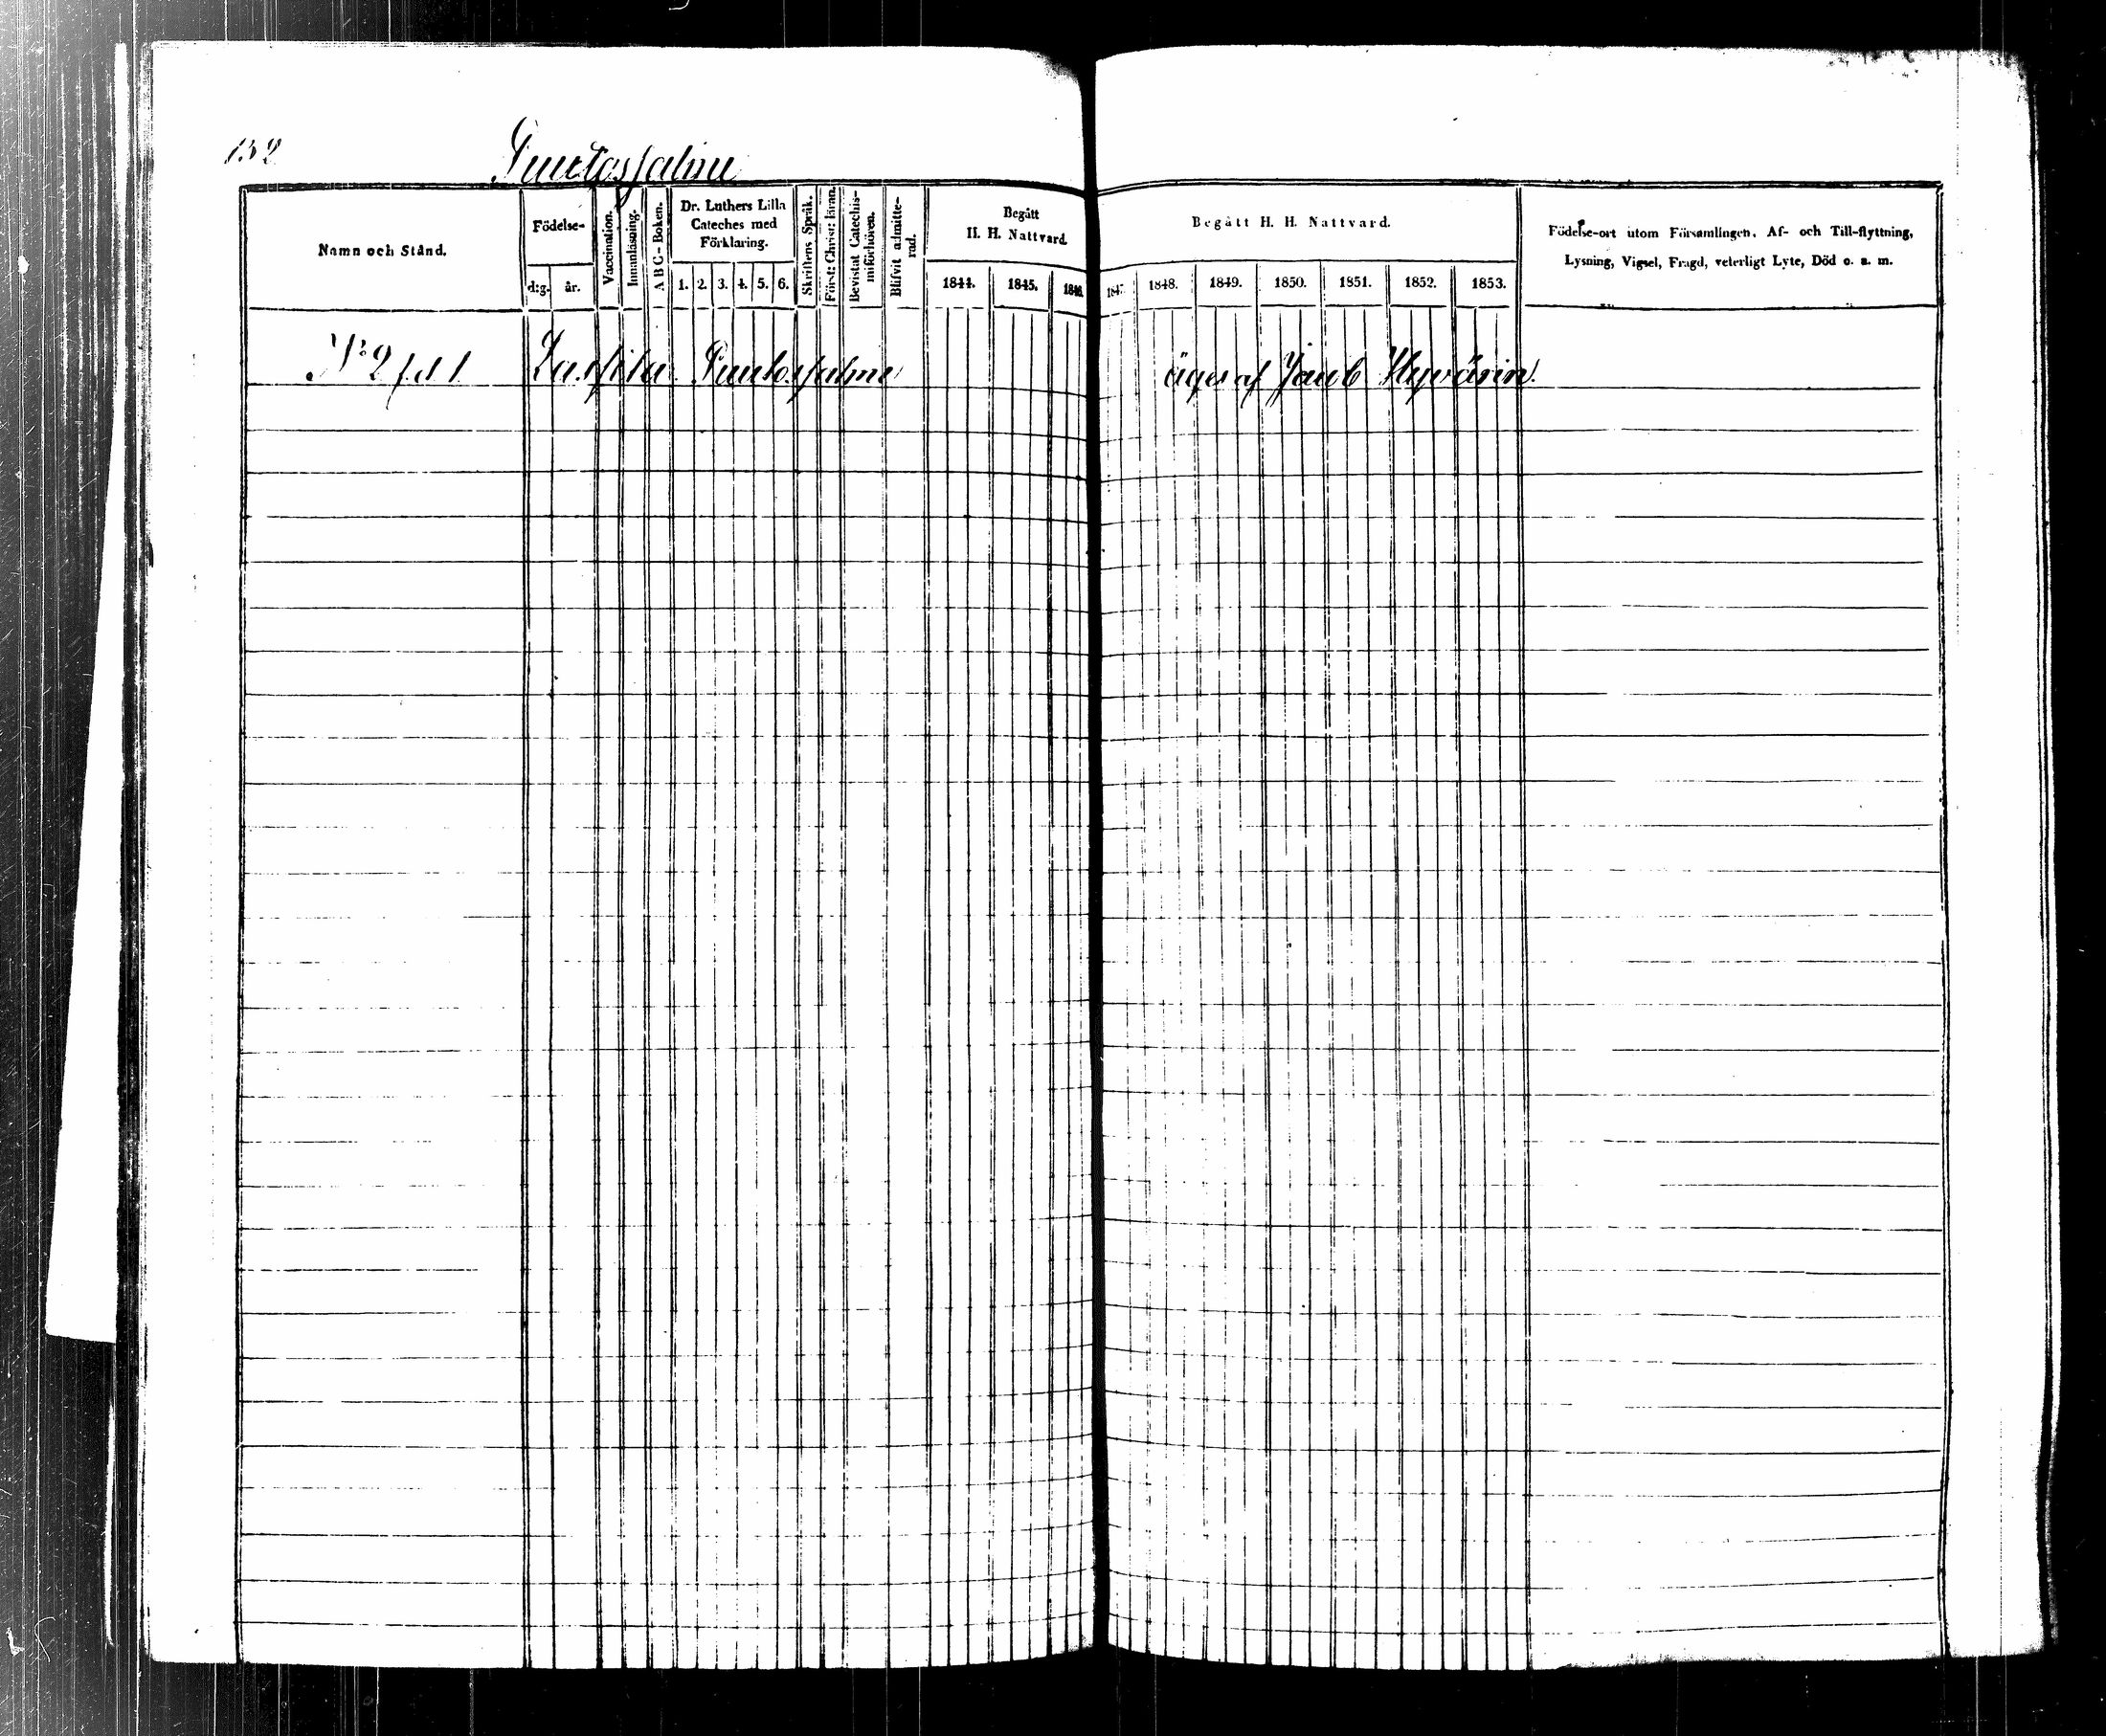 132
Puutossalmi
Namn och Stånd.
Födelse-
d:g. år.
Vaccination.
Innanläsning.
A B C - Boken.
Dr. Luthers Lilla
Cateches med
Förklaring.
1. 2. 3. 4. 5. 6.
Skriftens Språk.
Först: Christ: läran.
Bevistat Catechis-
miförhören.
Blifvit admitte-
rad.
Begått
H. H. Nattvard.
1844. 1845. 1846.
Begått H. H. Nattvard.
1847. 1848. 1849. 1850. 1851. 1852. 1853.
Födelse-ort utom Församlingen, Af- och Till-flyttning,
Lysning, Vigsel, Frägd, veterligt Lyte, Död o. s. m.
N:o 2 Puutossalmi äges af Hyvärin.